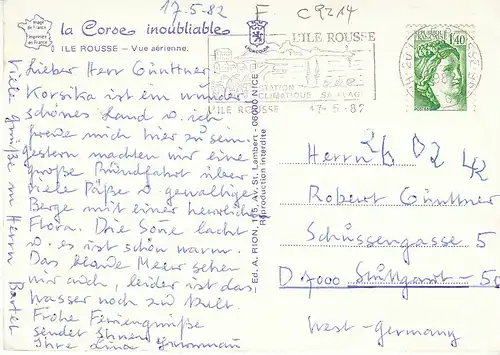 17-5-82 F C9214
Image de France
Imprimées en France
la Corse inoubliable
ILE ROUSSE - Vue aérienne.
Lieber Herr Günttner
Korsika ist ein wunder
schönes Land u. ich
freue mich hier zu sein.
gestern machten wir eine
große Rundfahrt über
viele Päße u. gewaltige
Berge mit einer herrlichen
Flora. Die Sonne lacht
u. es ist schön warm.
Das blaue Meer sehen
wir auch, leider ist das
Wasser noch zu kalt.
Frohe Feriengrüße
sendet Ihnen
Ihre Lina
Viele Grüße an Herrn Bartel
LIGNCOLOR
Ed. A. RION, 175, Av. St. Lambert - 06000 NICE
Reproduction interdite
L'ILE ROUSSE
STATION
CLIMATIQUE SA PLAGE
L'ILE ROUSSE 17-5-82
1,40
Herrn 26 D2 42
Robert Günttner
Schussengasse 5
D 7000 Stuttgart-50
West-Germany